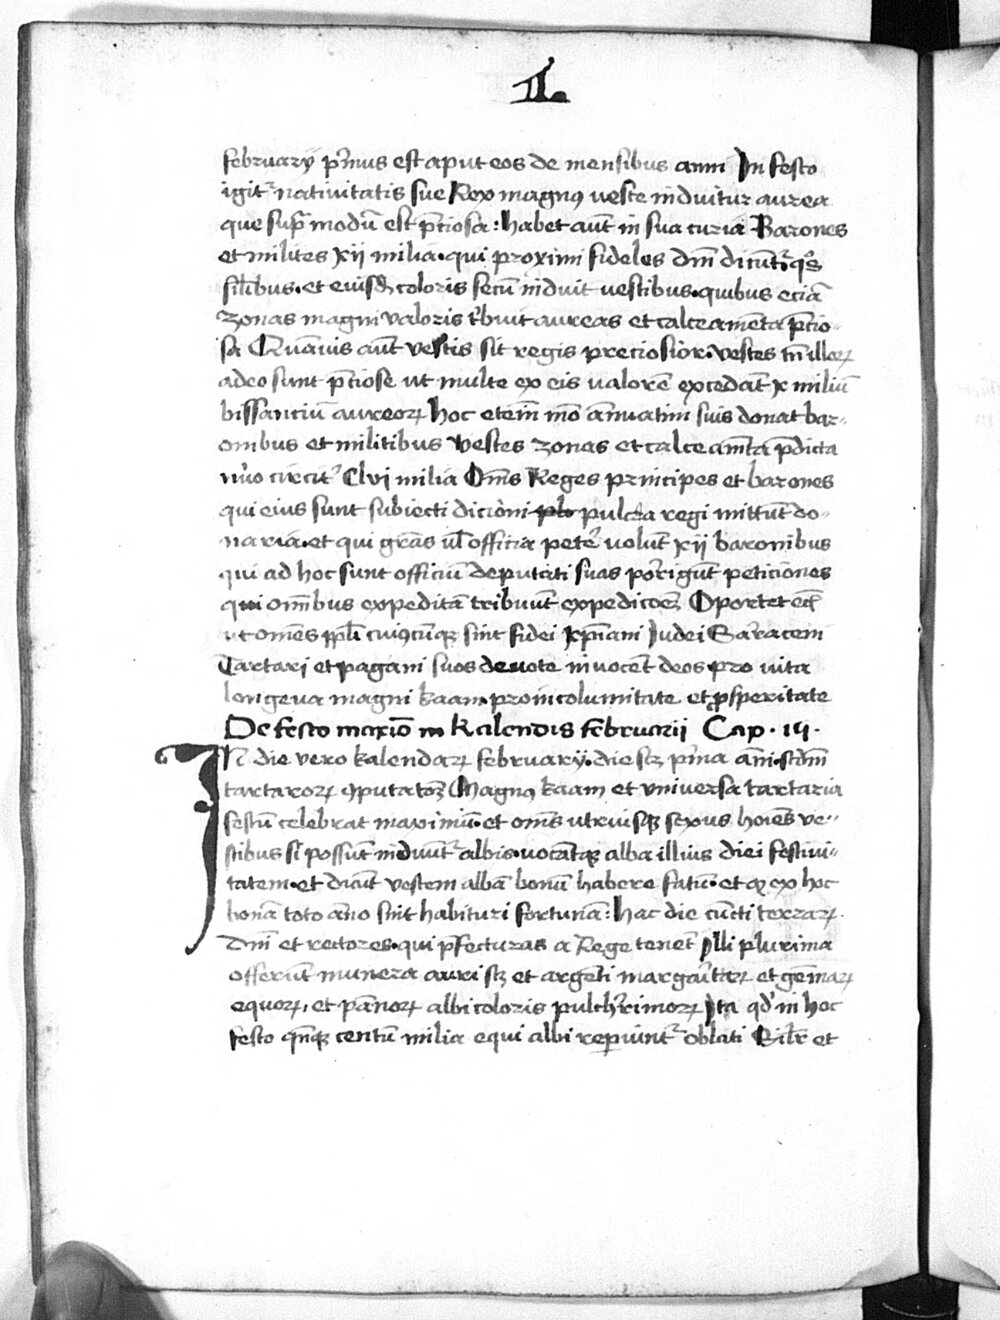 II.
february p̃mus est aput eos de mensibus anni In festo
igit᷑ nativitatis sue Rex magnꝰ veste induitur aurea
que sup̃ modū est p̃tiosa : habet aūt in sua curia Barones
et milites xij milia · qui proximi fideles dn̄i dicunt᷑
silibus · et eiusdē coloris secū induit vestibus · quibus eciā
zonas magni valoris t̾buit aureas et calceamēta p̄cio-
sa Quāuis aūt vestis sit regis preciosior · vestes tn̄ illoꝝ
adeo sunt p̄tiose ut multe ex eis valorē excedāt x miliū
bissantiū aureoꝝ hoc eteim̄ mō annuatim suis donat bar-
onibus et militibus vestes zonas et calceam̄ta p̄dicta
Clvi milia Om̄s Reges principes et barones
qui eius sunt subiecti dicioni pulcra regi mittūt do-
naria · et qui gr̄as ul̄ officia pete᷑ volūt xij baronibus
qui ad hoc sunt officiū deputati suas porrigūt peticiones
qui om̄ibus expeditā tribuūt expedicōeꝫ Oportet
ut omēs ppl̄i cuiꝰcūqꝫ sint fidei xp̄iani Judei Sarraceni
Tartari et pagani suos devote invocēt deos pro vita
longeva magni kaam · pro incolumitate et ꝓsperitate
De festo maxīo in Kalendis februarii Cap · iij ·
IN die vero kalendaꝝ february · die scꝫ p̃ma anni · scd̄m
tartaroꝝ ꝯputatōꝫ Magnꝰ kaam et universa tartaria
festū celebrat maximū · et om̄s utriusqꝫ sexus hoīes ve-
stibus si possūt induūt᷑ albis · vocātqꝫ alba illius diei festivi-
tatem · et dicūt vestem albā bonū habere fatū · et qꝫ ex hoc
bonā toto āno sint habituri fortunā : hac die cūcti terraꝝ
dn̄i et rectores · qui p̄fecturas a Rege tenēt Illi plurima
offerūt munera auri scꝫ et argēti margaritaꝝ et gēmaꝝ
equoꝝ, et pānoꝝ albi coloris pulcherrimoꝝ Ita qd̓ in hoc
festo qn̄qꝫ centū milia equi albi reperiunt᷑ oblati Silr̄ et